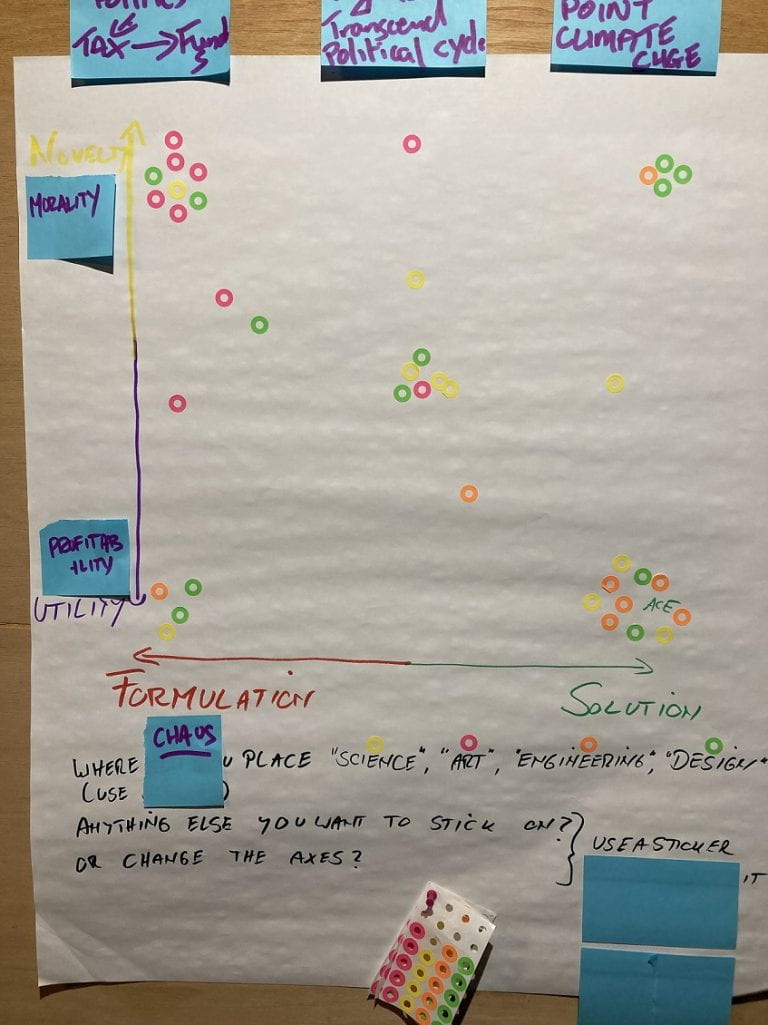 TAX → Funds
Transcend
Political cycle
POINT
CLIMATE
CHGE
NOVELTY
MORALITY
PROFITAB
ILITY
UTILITY
ACE
FORMULATION
SOLUTION
CHAOS
WHERE U PLACE "SCIENCE", "ART", "ENGINEERING", "DESIGN"
(USE )
ANYTHING ELSE YOU WANT TO STICK ON?
OR CHANGE THE AXES?
USE A STICKER
IT